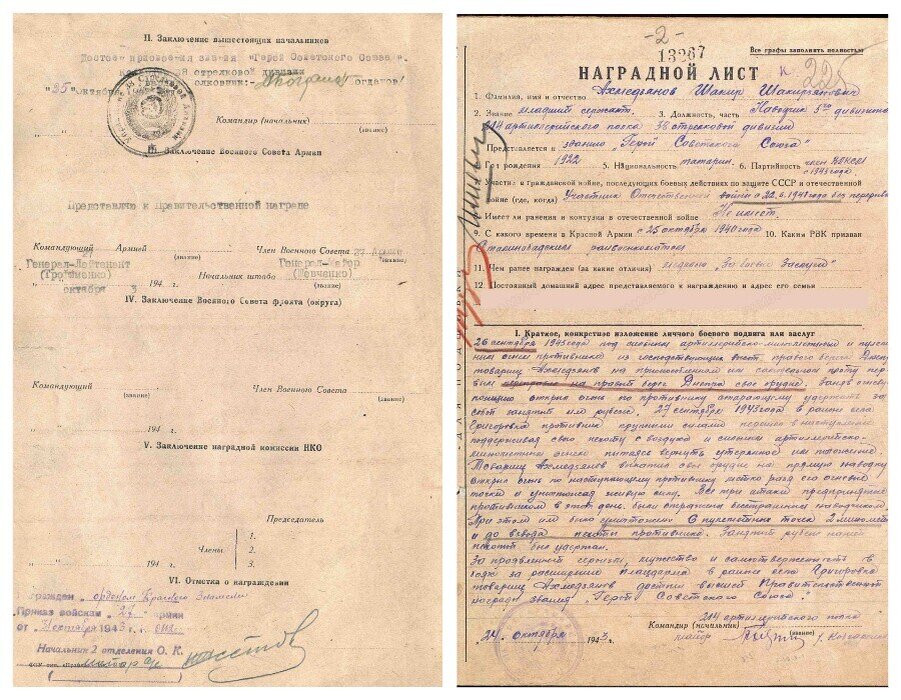 II. Заключение вышестоящих начальников
Достоин присвоения звания "Герой Советского Союза".
стрелковой дивизии
"25" октября
Командир (начальник)
(звание)
III. Заключение Военного Совета Армии
Представляю к правительственной награде
Командующий Армией
27
Генерал-Лейтенант
(Трофименко)
(звание)
Член Военного Совета 27 Армии
Генерал-Майор
(Шевченко)
(звание)
Начальник штаба
октября 3 194 г.
IV. Заключение Военного Совета фронта (округа)
Командующий
(звание)
Член Военного Совета
(звание)
194 г.
V. Заключение наградной комиссии НКО
Председатель
Члены
1.
2.
3.
194 г.
VI. Отметка о награждении
награжден орденом Красного Знамени
Приказ войскам 27 армии
от 31 октября 1943 г.
Начальник 2 отделения О. К.
-2-
13267
Все графы заполнять полностью
НАГРАДНОЙ ЛИСТ
1. Фамилия, имя и отчество Ахмедзянов Шакир Шакирзянович
2. Звание младший сержант 3. Должность, часть Наводчик 5го дивизиона
214 артиллерийского полка 38 стрелковой дивизии
Представляется к званию "Герой Советского Союза"
Год рождения 1922 5. Национальность татарин 6. Партийность член ВЛКСМ
с 1943 года
Участие в гражданской войне, последующих боевых действиях по защите СССР и отечественной
войне (где, когда) Участник Отечественной войны с 22.6.1941 года без перерыва
8. Имеет ли ранения и контузии в отечественной войне Не имеет.
9. С какого времени в Красной Армии с 25 октября 1940 года 10. Каким РВК призван
Сталинабадским райвоенкоматом
11. Чем ранее награжден (за какие отличия) медалью "За боевые Заслуги"
12. Постоянный домашний адрес представляемого к награждению и адрес его семьи
I. Краткое, конкретное изложение личного боевого подвига или заслуг
26 сентября 1943 года под сильным артиллерийско-минометным и пулеметным
огнем противника из господствующих высот правого берега Днепр
товарищ Ахмедзянов на
вым переправил на правый берег Днепра свое орудие. Заняв огневую
позицию открыл огонь по противнику старающему удержать за
собой занятый им рубеж. 27 сентября 1943 года в районе села
Григоровка противник крупными силами перешел в наступление
поддерживая свою пехоту с воздуха и сильным артиллерийско-
минометным огнем пытаясь вернуть утерянное им положение.
Товарищ Ахмедзянов выкатил свое орудие на прямую наводку
открыл огонь по наступающему противнику метко разя его огневые
точки и уничтожая живую силу. Все три атаки предпринятые
противником в этот день были отражены бесстрашным наводчиком.
При этом им было уничтожено 6 пулеметных точек 2 миномета
и до взвода пехоты противника. Занятый рубеж нашей
пехотой был удержан.
За проявленный героизм, мужество и самоотверженность в
боях за расширение плацдарма в районе село Григоровка
товарищ Ахмедзянов достоин высшей Правительственной
награды звания "Герой Советского Союза".
214 артиллерийского полка
Командир (начальник)
майор
(звание)
24 октября 1943 г.